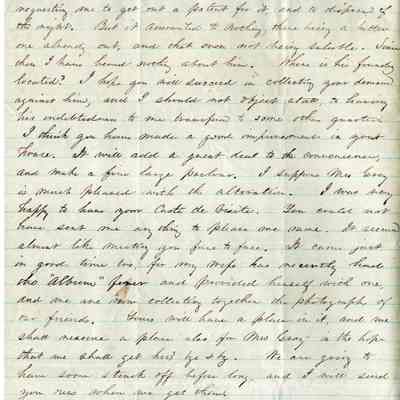 requesting me to get out a patent for it and to dispose of
the right. But it amounted to nothing, there being a better
one already out, and that even not being salable. Since
then I have heard nothing about him. Where is his family
located? I hope you will succeed in collecting your demand
against him, and I should not object at all to having
his indebtedness to me transferred to some other quarter.
I think you have made a good improvement in your
house. It will add a great deal to the conveniences,
and make a fine large parlor. I suppose Mrs
is much pleased with the alteration. I was very
happy to have your Carte de Visite. You could not
have sent me any thing to please me more. It seemed
almost like meeting you face to face. It came just
in good time too, for my wife has recently had
the "Album" fever and provided herself with one,
and we are now collecting together the photographs of
our friends. Yours will have a place in it, and we
shall reserve a place also for Mrs in the hope
that we shall get hers by & by. We are going to
have some struck off before long and I will send
you ours when we get them.